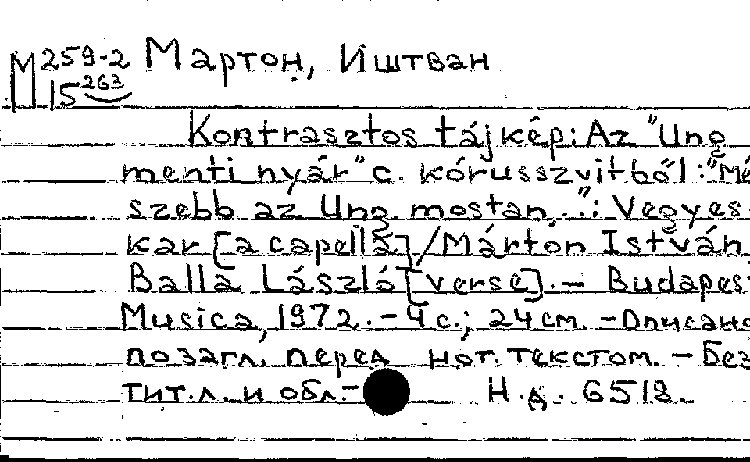 М 259-2 Мартон, Иштван
15 263
Kontrasztos tájkép: Az "Ung
menti nyár" c. kórusszvitből: "Mé
szebb az Ung mostan...": Vegyes
kar [a capella] / Márton István,
Balla László [verse]. — Budapes
Musica, 1972. — 4 c.; 24 cm. — Описано
по загл. перед нот. текстом. — Без
тит. л. и обл. —
Н.д. 6518.